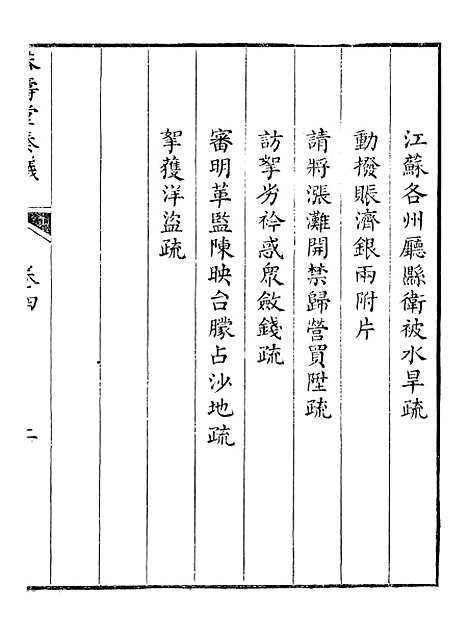 江蘇各州廳縣衛被水旱疏
動撥賑濟銀兩附片
請將漲灘開禁歸營買陞疏
訪拏劣衿惑眾斂錢疏
審明革監陳映台朦占沙地疏
拏獲洋盜疏
壽堂奏議
卷四
二